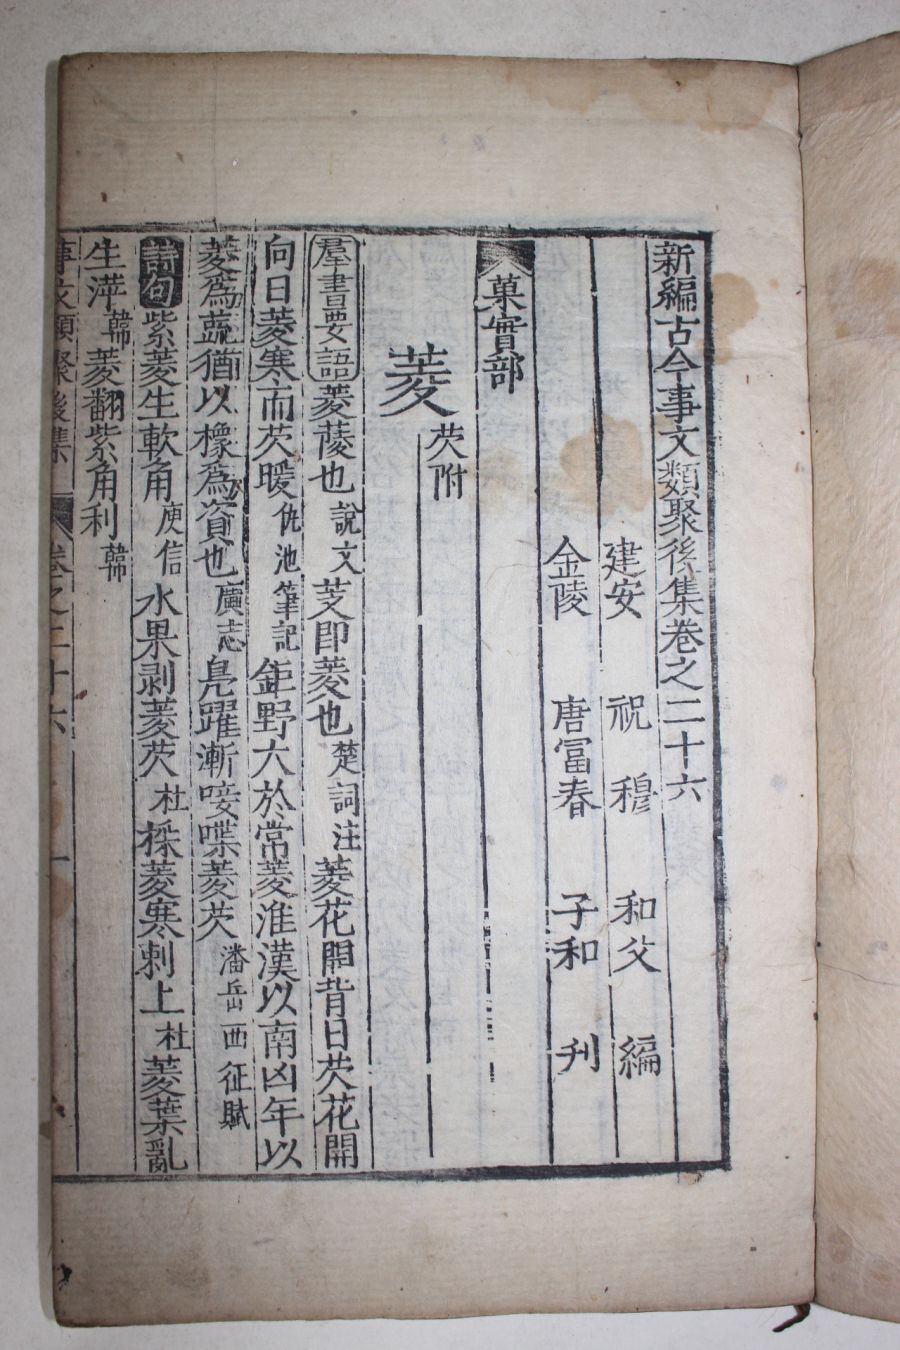 新編古今事文類聚後集卷之二十六
建安　祝　穆　和父　編
金陵　唐冨春　子和　刋
菓實部
菱 芡附
羣書要語 菱蔆也 說文 芰即菱也 楚詞注 菱花開背日芡花開
向日菱寒而芡暖 仇池筆記 鉅野大於常菱淮漢以南凶年以
菱爲蔬猶以橡爲資也 廣志 鳧躍漸唼喋菱芡 潘岳西征賦
詩句 紫菱生軟角 庾信 水果剥菱芡 杜 採菱寒刺上 杜 菱葉亂
生萍 韓 菱翻紫角利 韓
事文類聚後集 卷之二十六 一